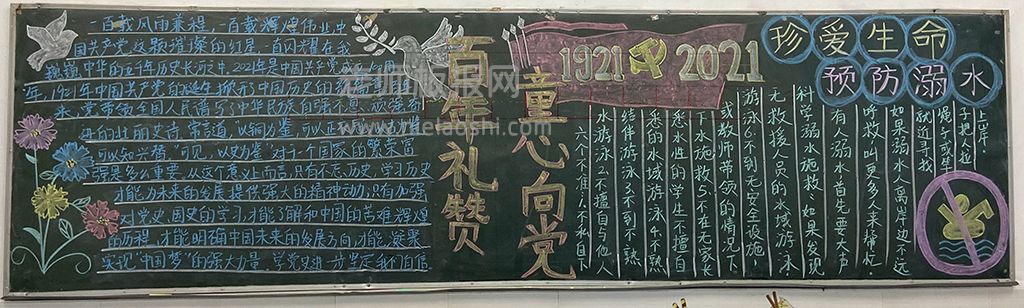 一百载风雨兼程，一百载辉煌伟业，中
国共产党这颗璀璨的红星，一直闪耀在我
巍巍中华的五千年历史长河之中。2021年是中国共产党成立100周
年，1921年中国共产党的诞生掀开中国历史的
来，党带领全国人民谱写了中华民族自强不息、顽强奋
进的壮丽史诗。常言道，“以铜为鉴，可以正衣冠，以史为鉴，
可以知兴替”可见，“以史为鉴”对于一个国家的繁荣富
强是多么重要。从这个意义上而言，只有不忘历史、学习历史
才能为未来的发展提供强大的精神动力；只有加强
对党史、国史的学习，才能了解和中国的苦难辉煌
的历程，才能明确中国未来的发展方向，才能凝聚
实现“中国梦”的强大力量，学党史进一步坚定我们自信
百年礼赞
童心向党
1921 2021
珍爱生命
预防溺水
六个不准：1.不私自下
水游泳2.不擅自与他人
结伴游泳3.不到不熟
悉的水域游泳4.不熟
悉水性的学生不擅自
下水施救5.不在无家长
或教师带领的情况下
游泳6.不到无安全设施、
无救援人员的水域游泳
科学溺水施救：如果发现
有人溺水首先要大声
呼救，叫更多人来帮忙。
如果溺水人离岸边不远
就近寻找
绳子或竿
子把人拉
上岸。
老师板报网
www.mrlaoshi.com